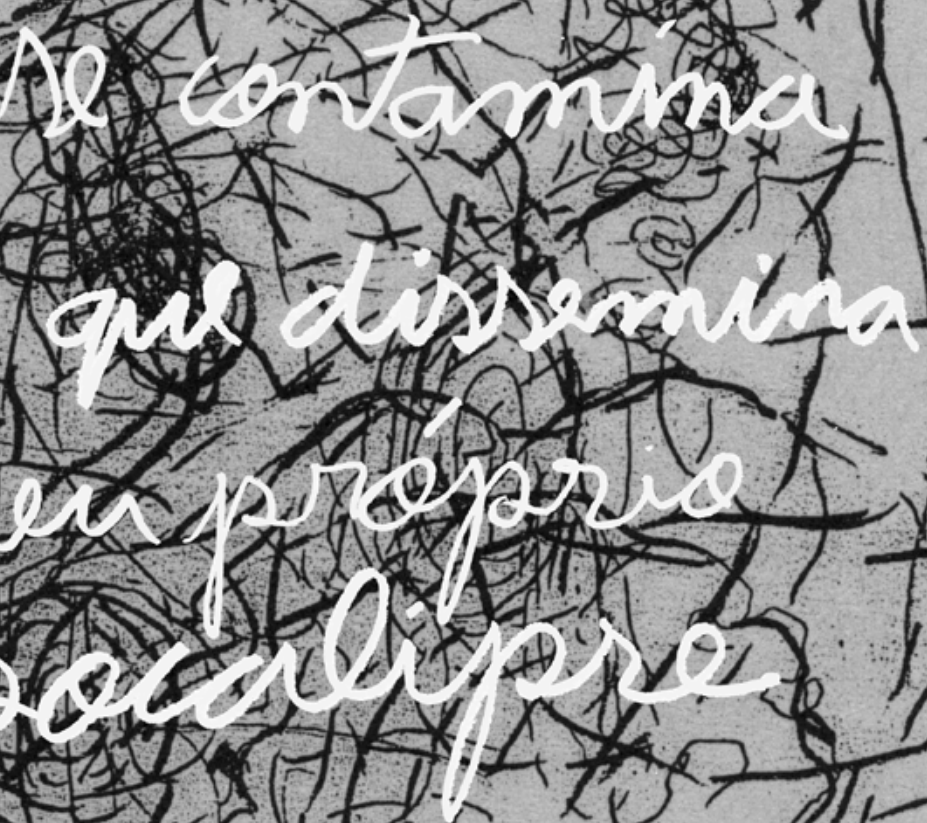 se contamina
que dissemina
eu próprio
pocalipse